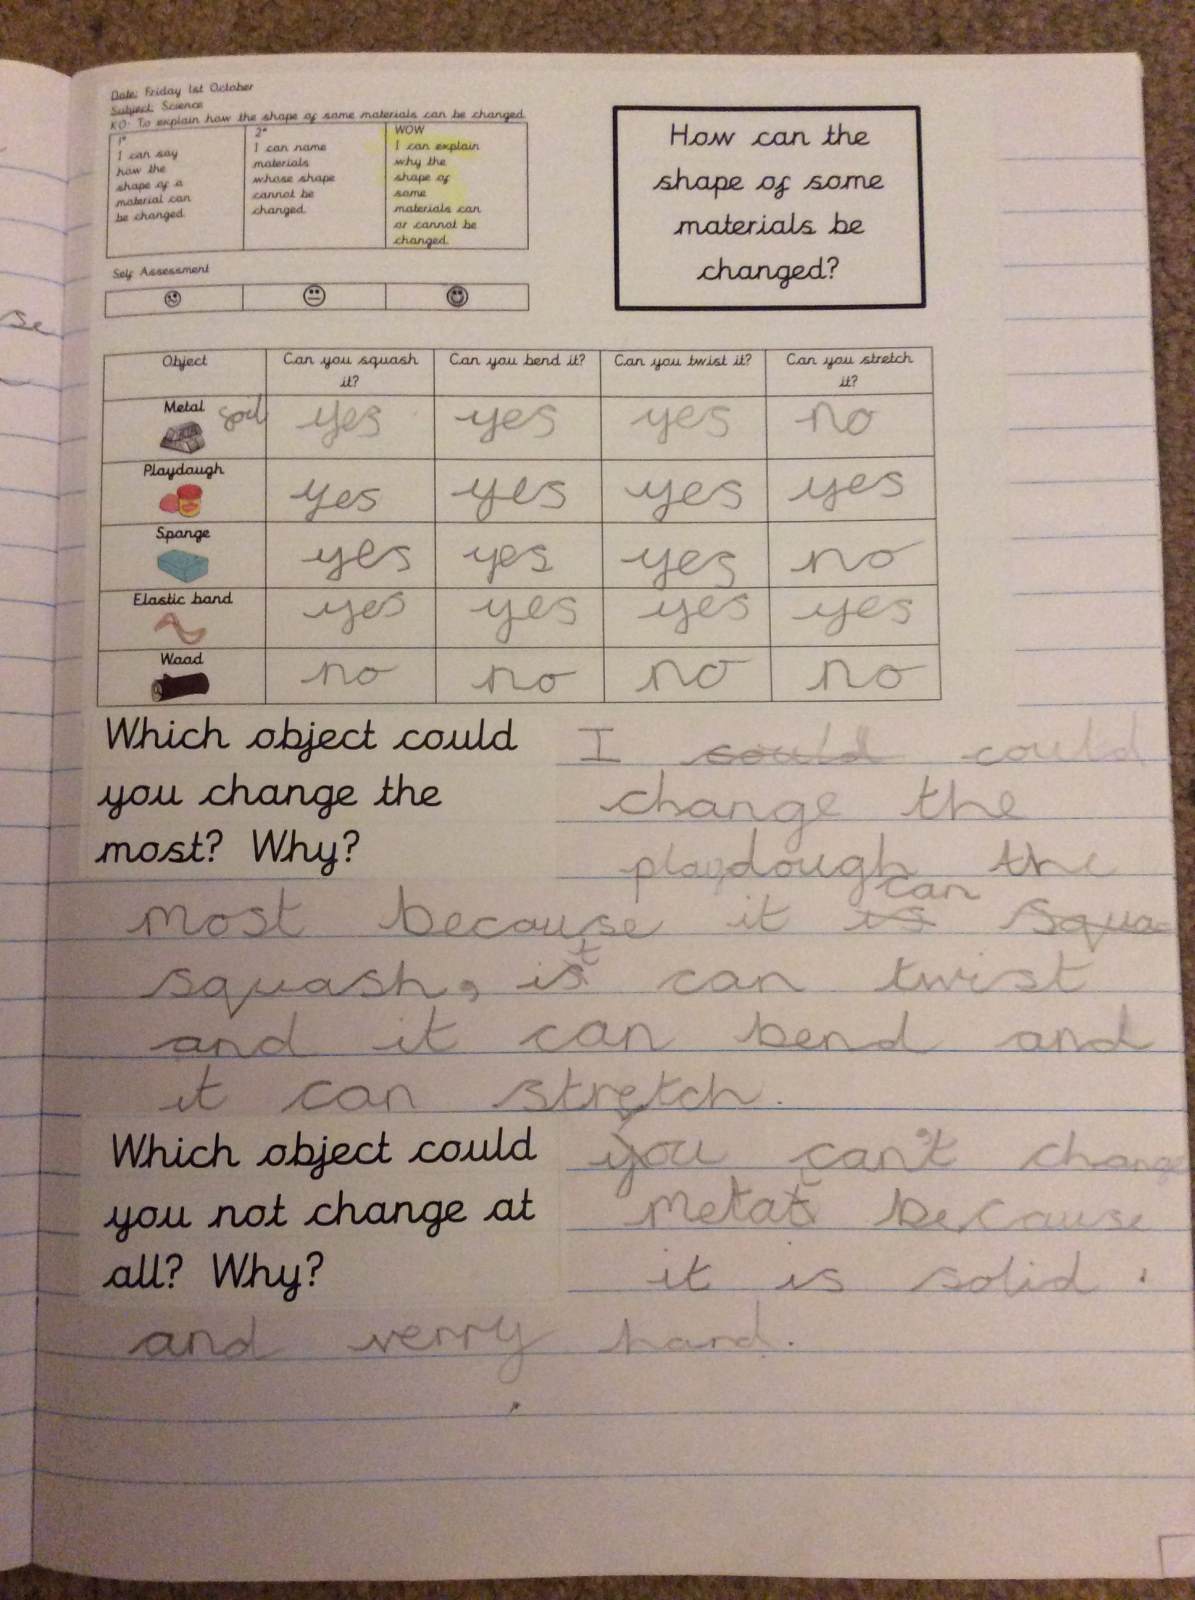 Date: Friday 1st October
Subject: Science
KO: To explain how the shape of some materials can be changed.
1*
I can say
how the
shape of a
material can
be changed.
2*
I can name
materials
whose shape
cannot be
changed.
WOW
I can explain
why the
shape of
some
materials can
or cannot be
changed.
Self Assessment
How can the
shape of some
materials be
changed?
Object Can you squash it? Can you bend it? Can you twist it? Can you stretch it?
Metal yes yes yes no
Playdough yes yes yes yes
Sponge yes yes yes no
Elastic band yes yes yes yes
Wood no no no no
Which object could
you change the
most? Why?
I could could
change the
playdough the
most because it is can squa
squash, it can twist
and it can bend and
it can stretch.
Which object could
you not change at
all? Why?
you can't change
metal because
it is solid.
and verry hard.
se